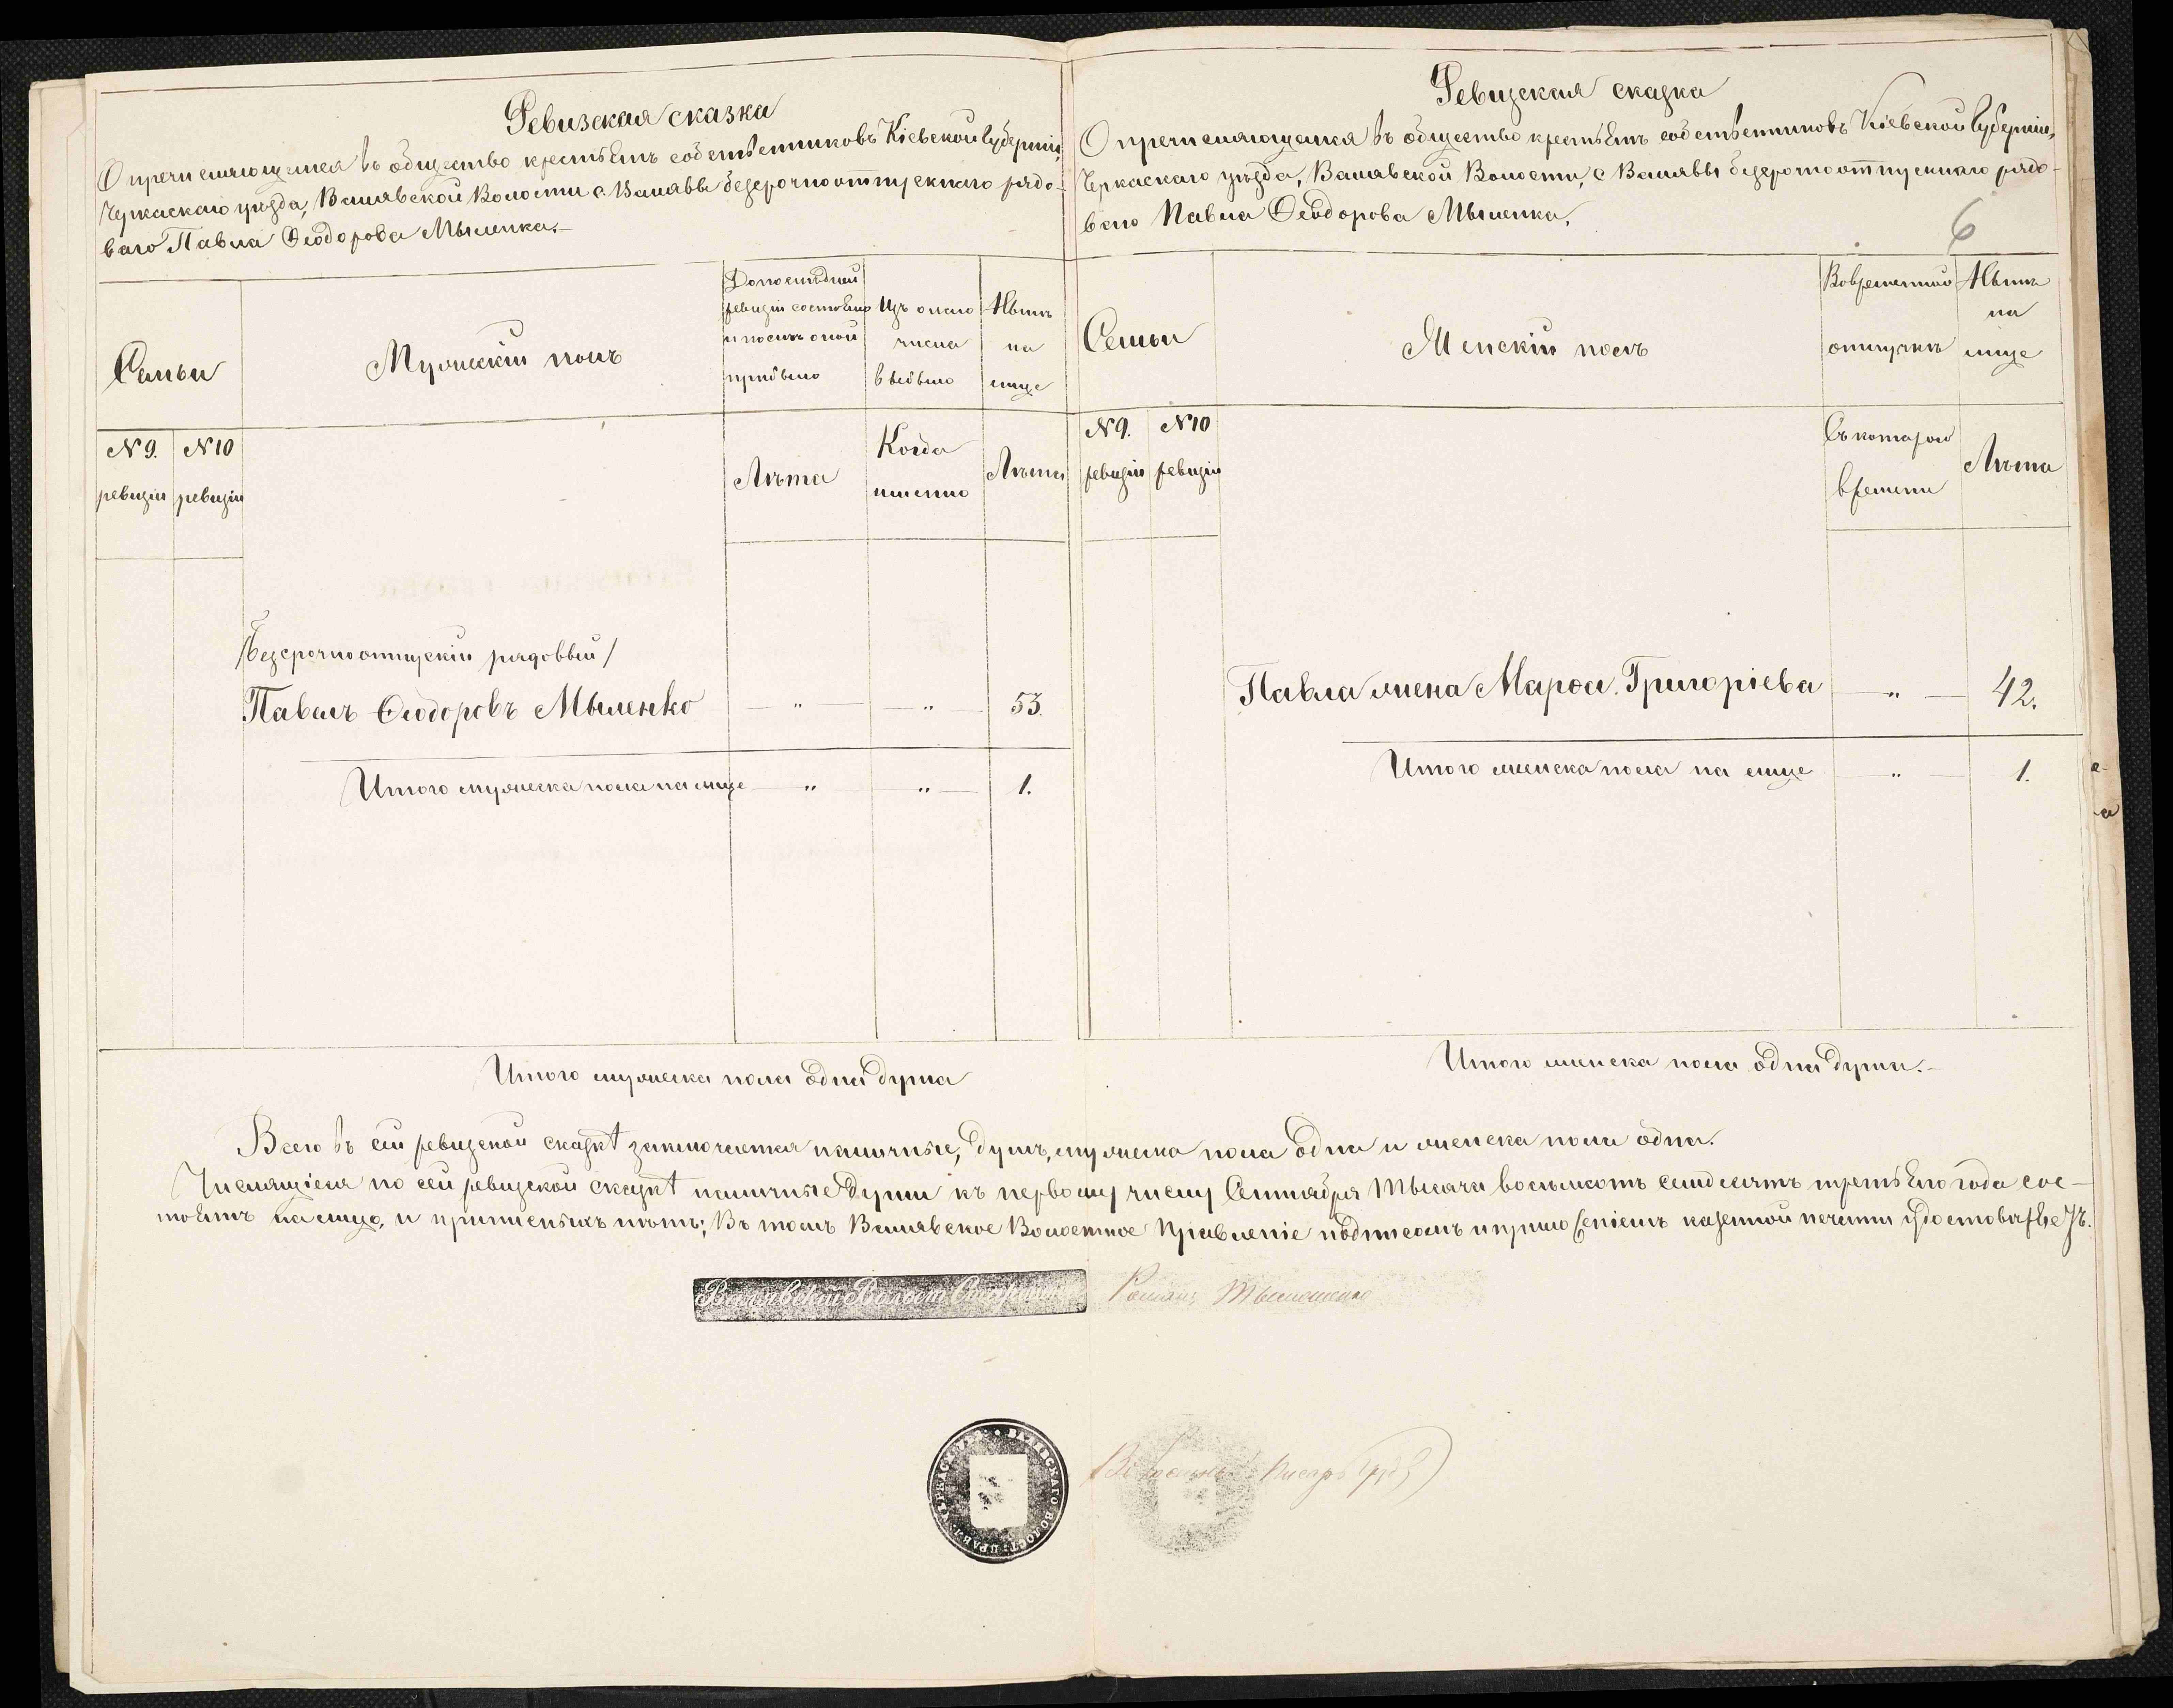 Ревизская сказка
О причисляющемся въ общество крестьянъ собственниковъ Кіевской Губерніи,
Черкаскаго уѣзда, Валявской Волости с. Валявы безсрочноотпускнаго рядо-
ваго Павла Ѳеодорова Мыленка.-
Семьи
Мужескій полъ
Допослѣдней
ревизіи состояло
и послѣ оной
прибыло
Изъ онаго
числа
выбыло
Нынѣ
на
лице
№ 9.
ревизіи
№ 10
ревизіи
Лѣта
Когда
именно
Лѣта
/безсрочноотпускій рядовый/
Павелъ Ѳеодоровъ Мыленко — „ — — „ — 53.
Итого мужеска пола на лице — „ — „ — 1.
Итого мужеска пола одна душа
Ревизская сказка
О причисляющемся въ общество крестьянъ собственниковъ Кіевской Губерніи,
Черкаскаго уѣзда, Валявской Волости, с Валявы безсрочноотпускнаго рядо-
ваго Павла Ѳеодорова Мыленка.
6
Семьи
Женскій полъ
Вовременной
отлучкѣ
Нынѣ
на
лице
№ 9.
ревизіи
№ 10
ревизіи
Съ котораго
времени
Лѣта
Павла жена Марѳа Григоріева — „ — 42.
Итого женска пола на лице — „ — 1.
Итого женска пола одна душа.-
Всего въ сей ревизской сказкѣ заключается наличныхъ, душъ, мужеска пола одна и женска пола одна.
Числящіеся по сей ревизской сказкѣ наличные души къ первому числу Сентября тысяча восемьсотъ семдесятъ третьяго года сос-
тоятъ на лицо, и приписныхъ нѣтъ; Въ томъ Валявское Волостное Правленіе подписомъ и приложеніемъ казенной печати удостовѣряетъ.
Валявскій Волост Старшина Романъ
ВАЛЯВСКАГО ВОЛОСТ: ПРАВЛ: ЧЕРКАС. УѢЗ.
Волостный Писарь